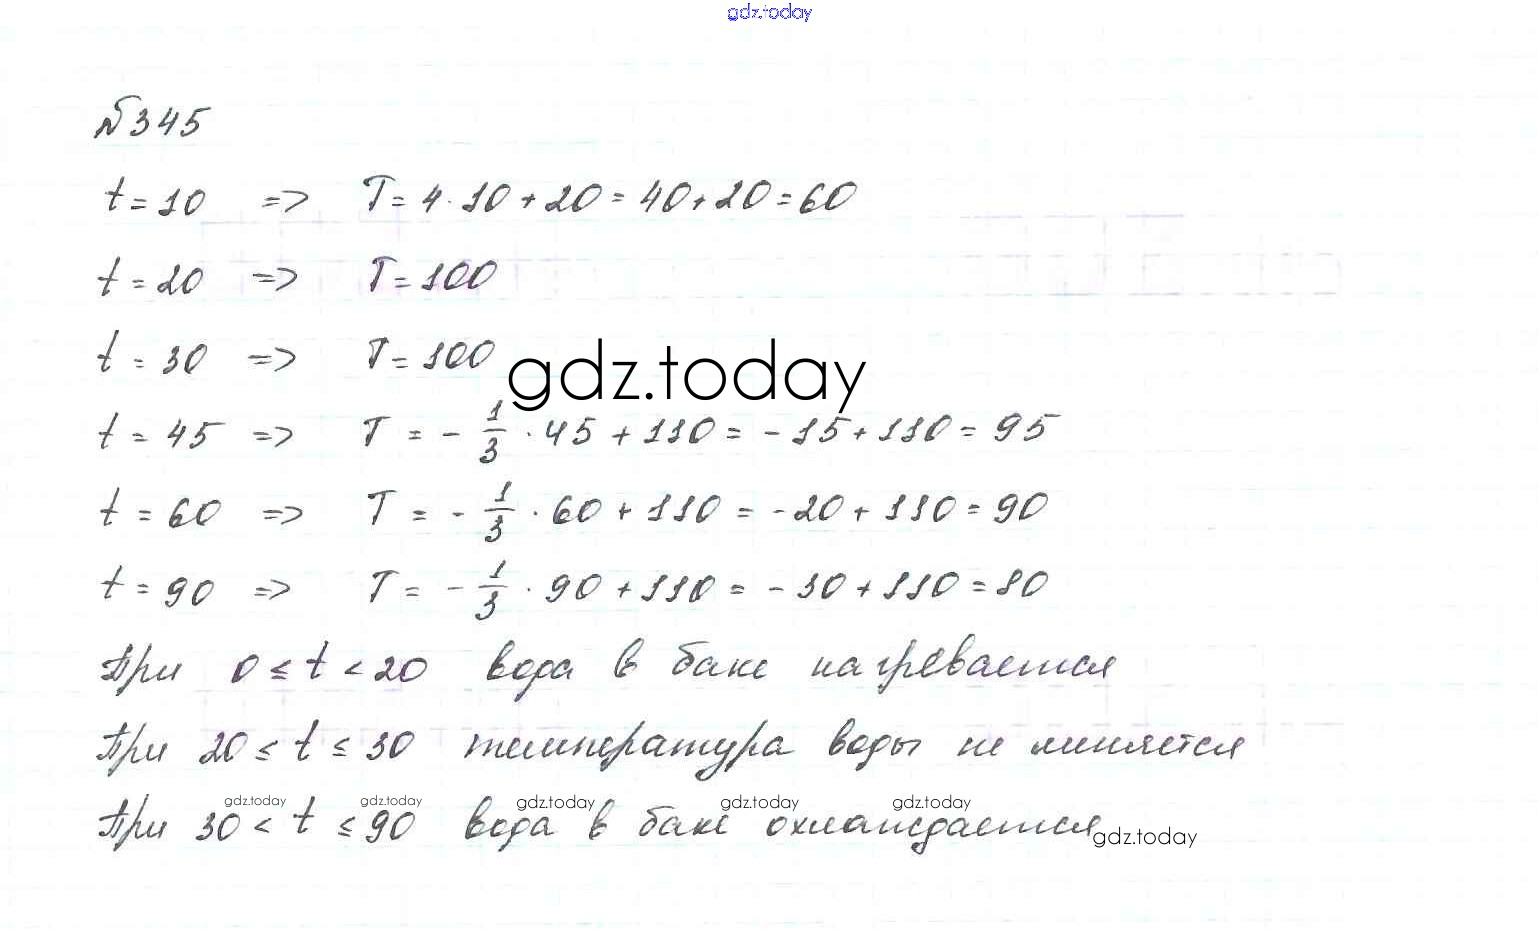 gdz.today
№345
t = 10 => T = 4 · 10 + 20 = 40 + 20 = 60
t = 20 => T = 100
t = 30 => T = 100
gdz.today
t = 45 => T = - 1/3 · 45 + 110 = - 15 + 110 = 95
t = 60 => T = - 1/3 · 60 + 110 = - 20 + 110 = 90
t = 90 => T = - 1/3 · 90 + 110 = - 30 + 110 = 80
При 0 ≤ t < 20 вода в баке нагревается
При 20 ≤ t ≤ 30 температура воды не меняется
gdz.today gdz.today gdz.today gdz.today gdz.today
При 30 < t ≤ 90 вода в баке охлаждается
gdz.today